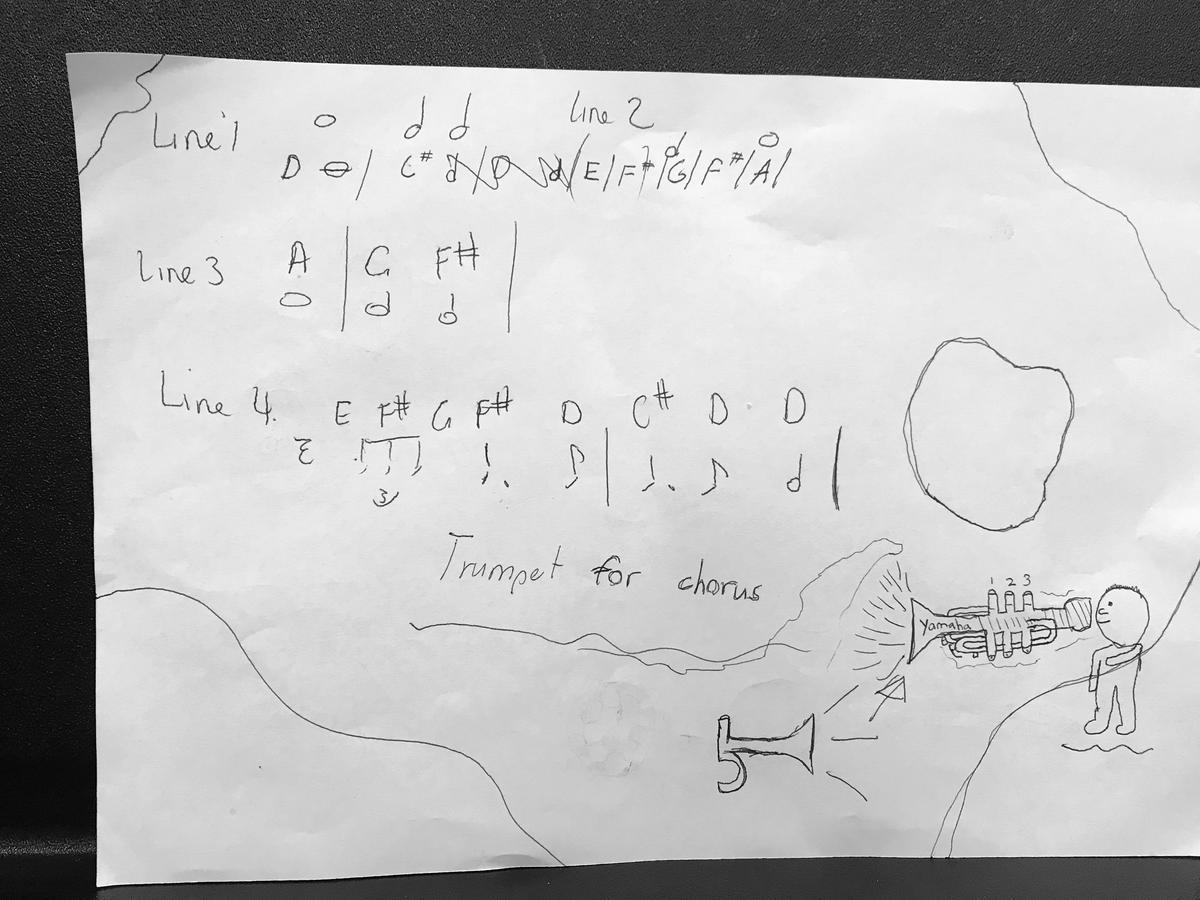 Line 1 Line 2
D / C# d / D d / E / F# / G / F# / A /
Line 3 A | G F# |
Line 4. E F# G F# D | C# D D |
3
Trumpet for chorus
1 2 3
Yamaha